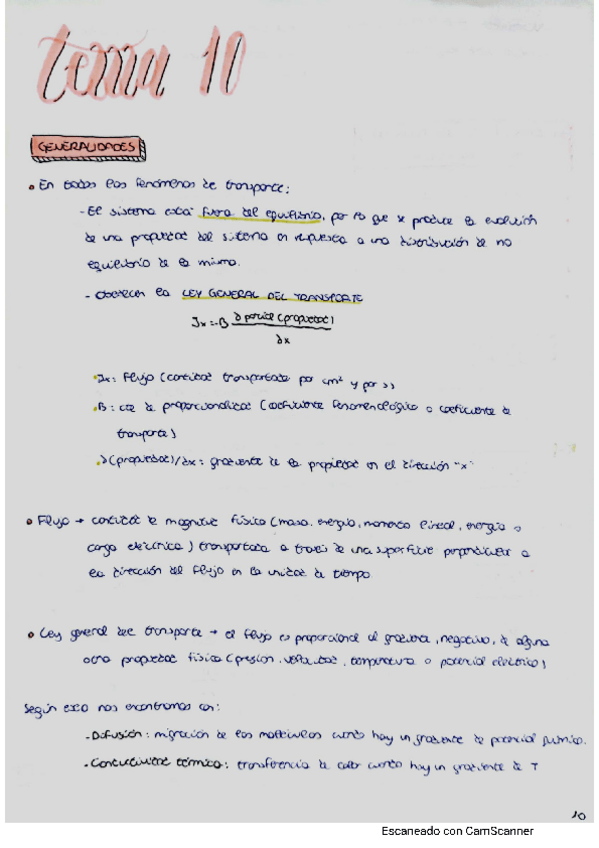 tema 10
GENERALIDADES
• En todos los fenómenos de transporte:
- El sistema está fuera del equilibrio, por lo que se produce la evolución
de una propiedad del sistema en respuesta a una distribución de no
equilibrio de la misma.
- Obedecen la LEY GENERAL DEL TRANSPORTE
Jx = -B ∂ parcial (propiedad)
∂x
• Jx: Flujo (cantidad transportada por cm² y por s)
• B: cte de proporcionalidad (coeficiente fenomenológico o coeficiente de
transporte)
• ∂(propiedad)/∂x: gradiente de la propiedad en el dirección "x"
• Flujo → cantidad de magnitud física (masa, energía, momento lineal, energía o
carga eléctrica) transportada a través de una superficie perpendicular a
la dirección del flujo en la unidad de tiempo
• Ley general del transporte → el flujo es proporcional al gradiente, negativo, de alguna
otra propiedad física (presión, velocidad, temperatura o potencial eléctrico)
Según esto nos encontramos con:
- Difusión: migración de las moléculas cuando hay un gradiente de potencial químico.
- Conductividad térmica: transferencia de calor cuando hay un gradiente de T
10
Escaneado con CamScanner